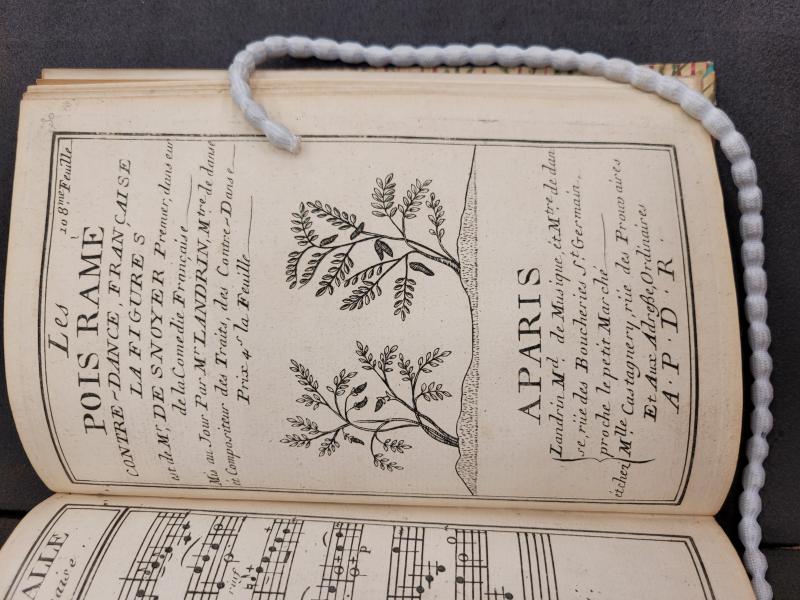 108.me Feuille
Les
POIS RAMÉ
CONTRE-DANCE, FRANÇAISE
LA FIGURES
est de Mr. DESNOYER Premier, danseur
de la Comedie Francaise
Mis au Jour, Par Mr. LANDRIN, Mtre de danse
et Compositeur des Traits, des Contre-Danse
Prix 4s la Feuille
A PARIS
Landrin Md. de Musique, et Mtre de dan
se, rüe des Boucheries St. Germain,
proche le petit Marché
et chez Mlle Castagnery, rüe des Prouvaires
Et Aux Adresse Ordinaires
A. P. D. R.
ALLE
aise.
rinf
P